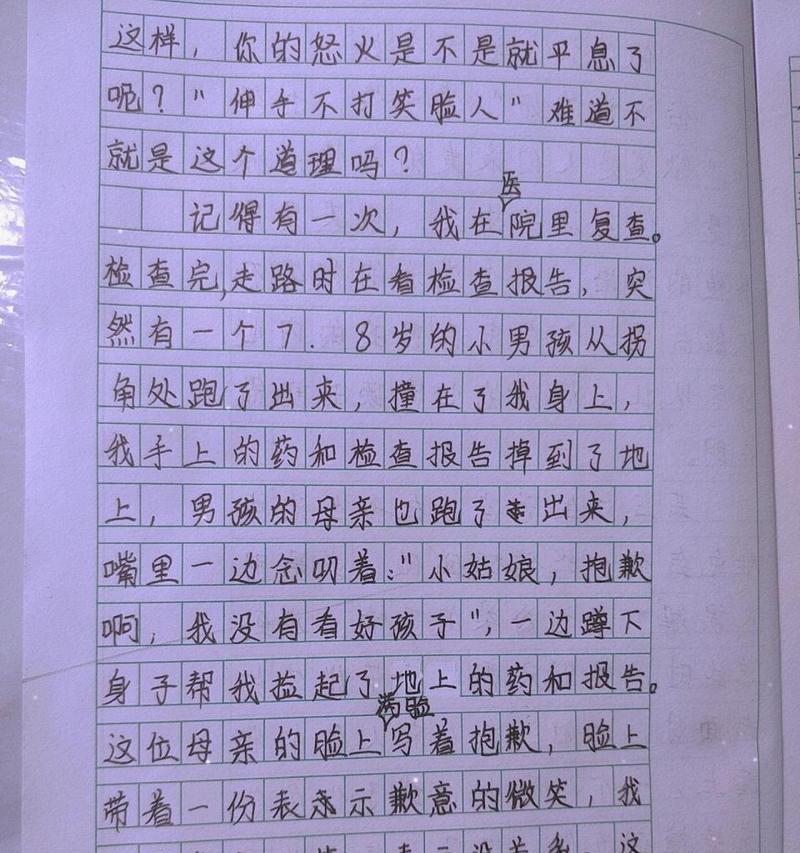 这样，你的怒火是不是就平息了
呢？"伸手不打笑脸人"难道不
就是这个道理吗？
记得有一次，我在医院里复查。
检查完，走路时在看检查报告，突
然有一个7．8岁的小男孩从拐
角处跑了出来，撞在了我身上，
我手上的药和检查报告掉到了地
上，男孩的母亲也跑了出来，
嘴里一边念叨着："小姑娘，抱歉
啊，我没有看好孩子"，一边蹲下
身子帮我捡起了地上的药和报告。
这位母亲的脸上满脸写着抱歉，脸上
带着一份表示歉意的微笑，我